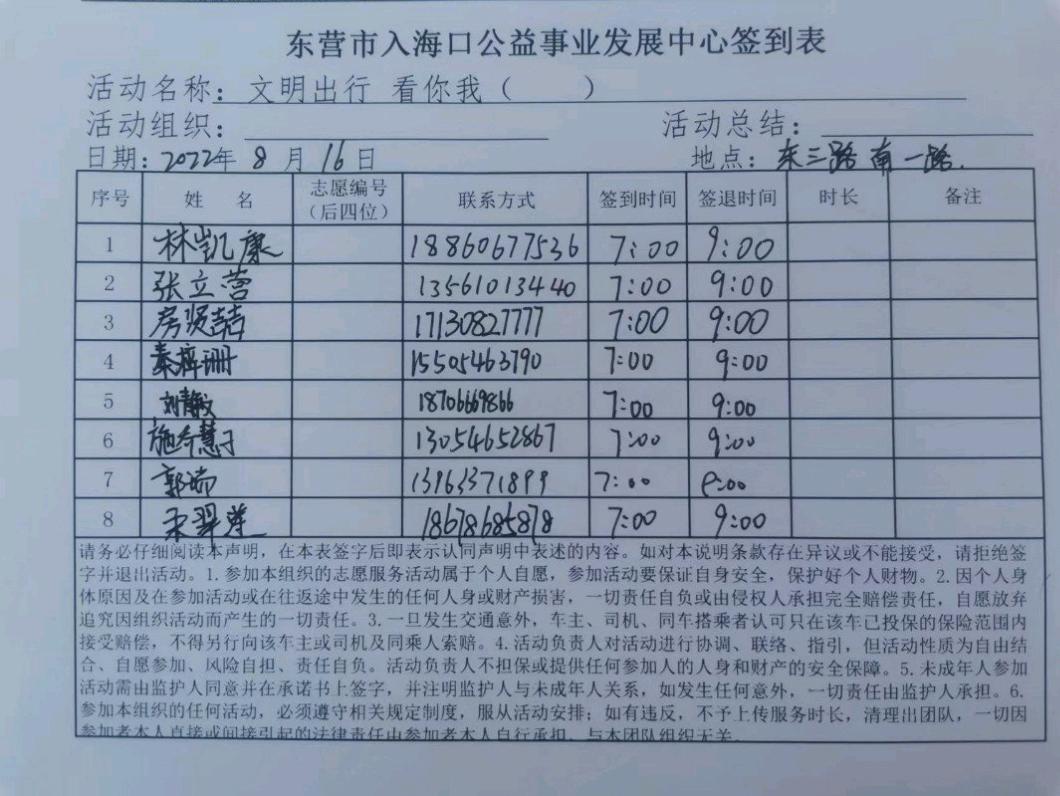 东营市入海口公益事业发展中心签到表
活动名称：文明出行 看你我（ ）
活动组织： 活动总结：
日期：2022年 8 月 16 日 地点：东三路南一路.
序号 姓 名 志愿编号（后四位） 联系方式 签到时间 签退时间 时长 备注
1 林凯康 18860677536 7:00 9:00
2 张立营 13561013440 7:00 9:00
3 房贤喆 17130827777 7:00 9:00
4 秦梓珊 15505463790 7:00 9:00
5 刘静敏 18706669866 7:00 9:00
6 13054652867 7:00 9:00
7 郭瑞 13963371899 7:00 9:00
8 18678685878 7:00 9:00
请务必仔细阅读本声明，在本表签字后即表示认同声明中表述的内容。如对本说明条款存在异议或不能接受，请拒绝签
字并退出活动。1.参加本组织的志愿服务活动属于个人自愿，参加活动要保证自身安全，保护好个人财物。2.因个人身
体原因及在参加活动或在往返途中发生的任何人身或财产损害，一切责任自负或由侵权人承担完全赔偿责任，自愿放弃
追究因组织活动而产生的一切责任。3.一旦发生交通意外，车主、司机、同车搭乘者认可只在该车已投保的保险范围内
接受赔偿，不得另行向该车主或司机及同乘人索赔。4.活动负责人对活动进行协调、联络、指引，但活动性质为自由结
合、自愿参加、风险自担、责任自负。活动负责人不担保或提供任何参加人的人身和财产的安全保障。5.未成年人参加
活动需由监护人同意并在承诺书上签字，并注明监护人与未成年人关系，如发生任何意外，一切责任由监护人承担。6.
参加本组织的任何活动，必须遵守相关规定制度，服从活动安排；如有违反，不予上传服务时长，清理出团队，一切因
参加者本人直接或间接引起的法律责任由参加者本人自行承担，与本团队组织无关。